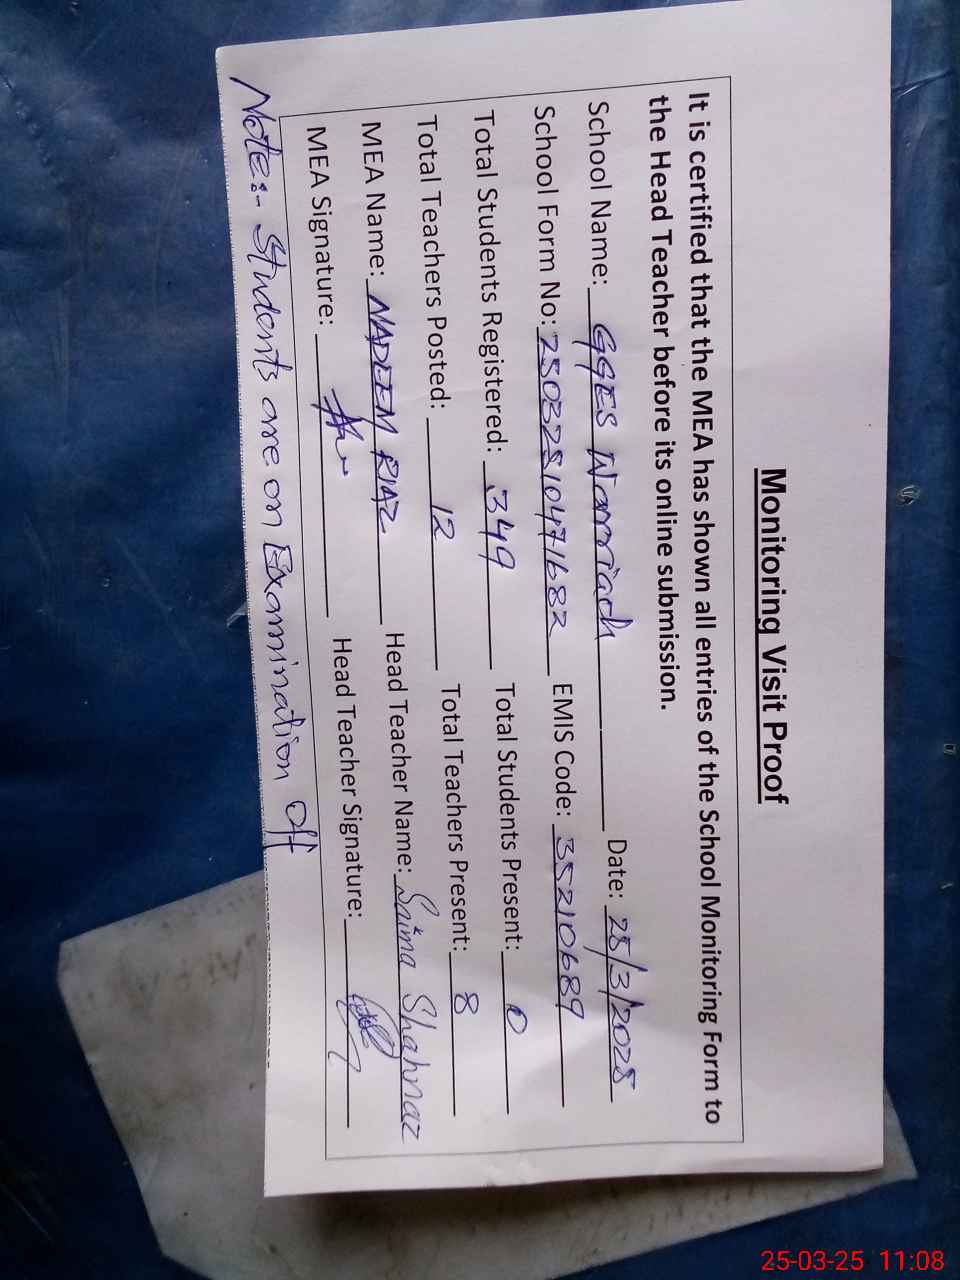 Monitoring Visit Proof
It is certified that the MEA has shown all entries of the School Monitoring Form to
the Head Teacher before its online submission.
School Name: GGES Warriach Date: 25/3/2025
School Form No: 25032510471682 EMIS Code: 35210689
Total Students Registered: 349 Total Students Present: 0
Total Teachers Posted: 12 Total Teachers Present: 8
MEA Name: NADEEM RIAZ Head Teacher Name: Saima Shahnaz
MEA Signature: Head Teacher Signature:
Note:- Students are on Examination off
25-03-25 11:08